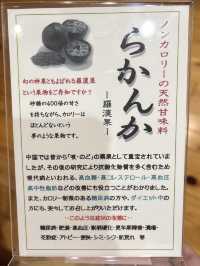 ノンカロリーの天然甘味料
らかんか
―羅漢果―
幻の神果ともよばれる羅漢果
という果物をご存知ですか？
砂糖の400倍の甘さ
を持ちながら、カロリーは
ほとんどないという
夢のような果物です。
中国では昔から「咳・のど」の薬果として重宝されていまし
たが、その後の研究により抗酸化物質を多く含むため
現代病といわれる、高血糖・高コレステロール・高血圧
高中性脂肪などの改善にも役立つことがわかりました。
また、カロリー制限のある糖尿病の方や、ダイエット中の
方にも、安心してお召し上がりいただけます。
―このような症状の改善に―
糖尿病・肥満・高血圧・動脈硬化・更年期障害・潰瘍・
花粉症・アトピー・便秘・シミ・シワ・肌荒れ 等